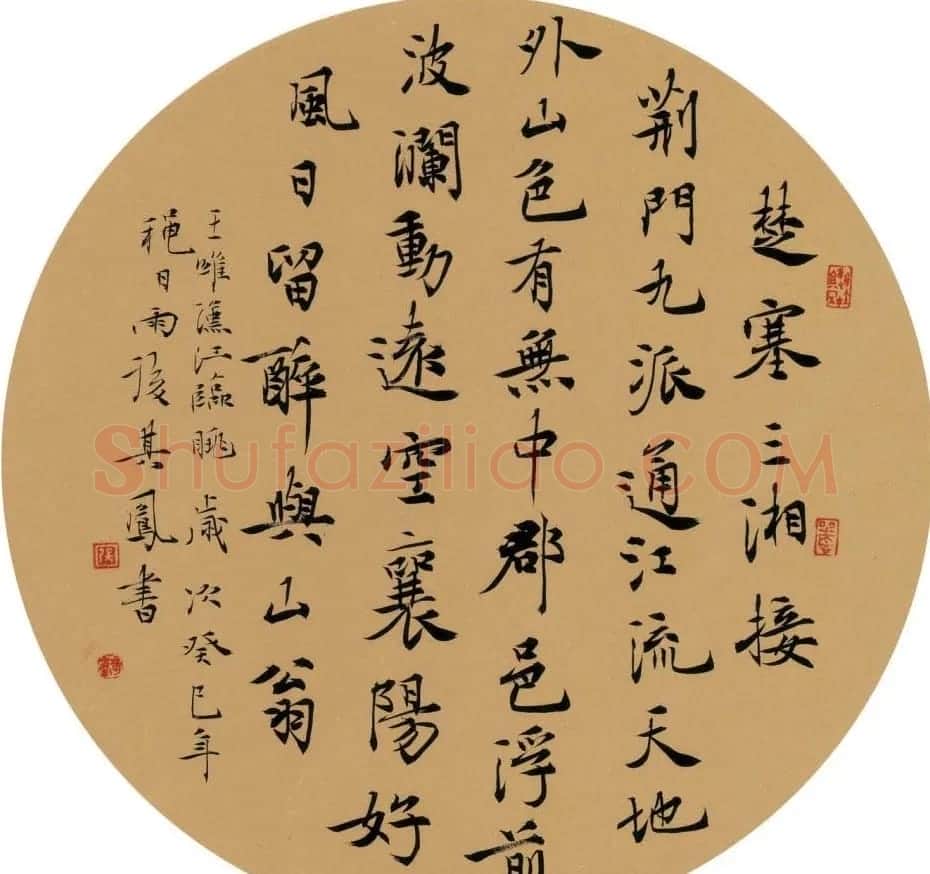 楚塞三湘接
荆門九派通江流天地
外山色有無中郡邑浮前
波瀾動遠空襄陽好
風日留醉與山翁
王維漢江臨眺 歲次癸巳年
穐日雨後其鳳書
Shufaziliao.COM